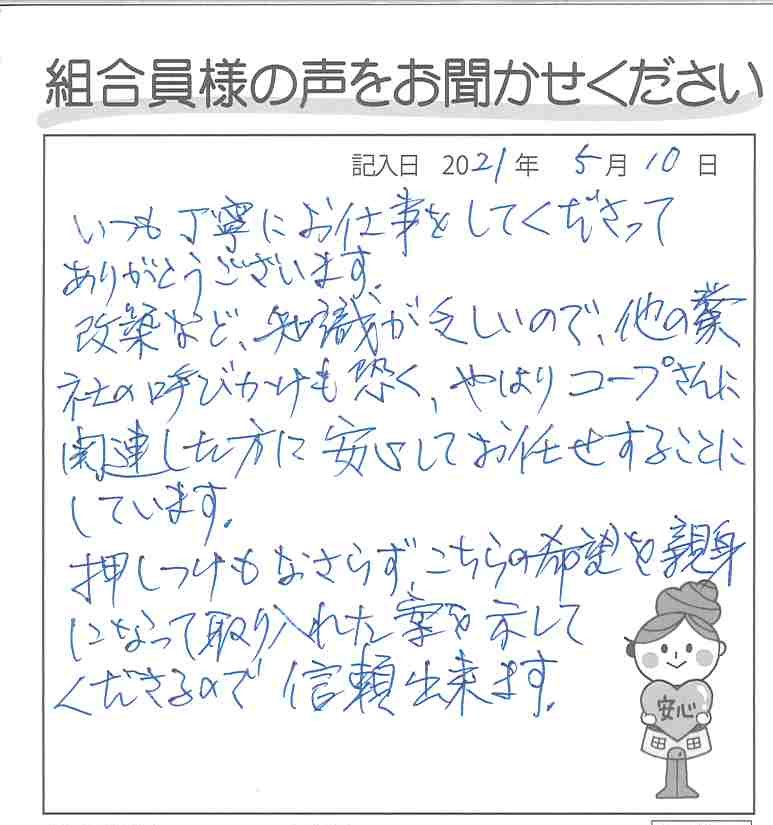 組合員様の声をお聞かせください
記入日 2021年 5月 10日
いつも丁寧にお仕事をしてくださって
ありがとうございます。
改築など、知識が乏しいので、他の業
社の呼びかけも恐く、やはりコープさんに
関連した方に安心してお任せすることに
しています。
押しつけもなさらず、こちらの希望を親身
になって取り入れた案を示して
くださるので信頼出来ます。
安心